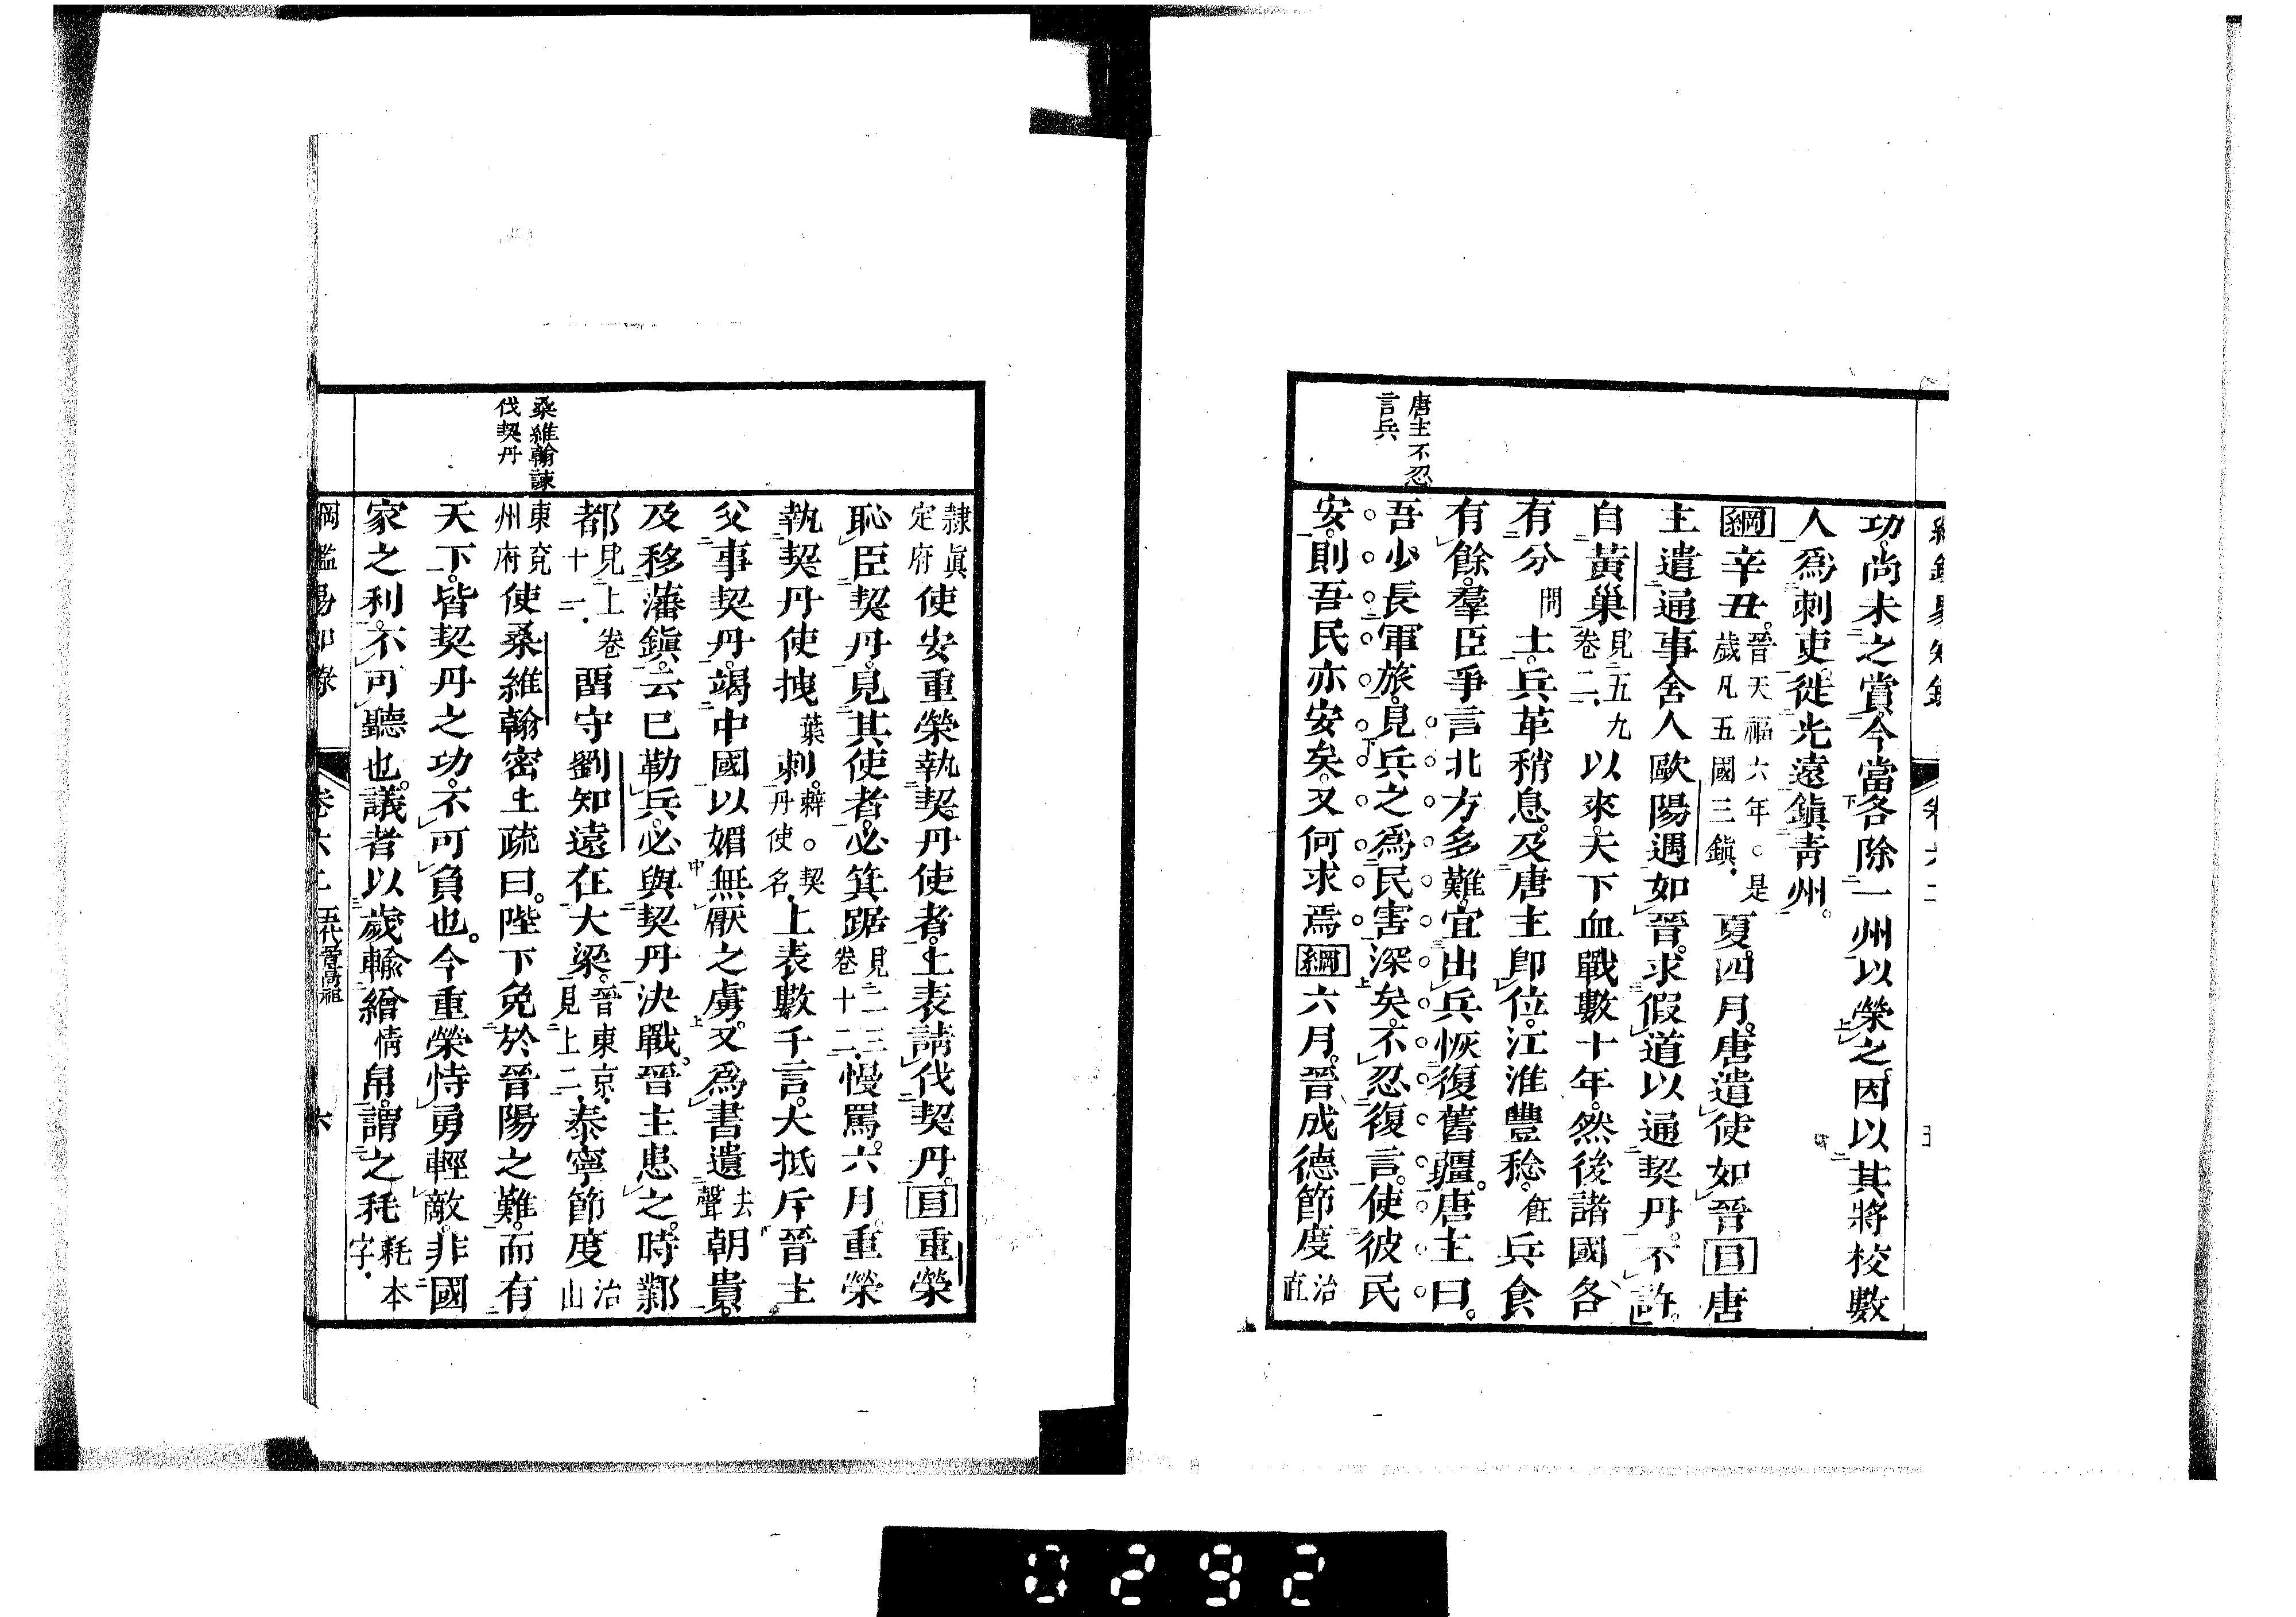 功。尚未之賞。今當各除一州以榮之。因以其將校數
人爲刺吏。徙光遠鎭靑州。
綱辛丑。晉天福六年。○是歲凡五國三鎭。夏。四月。唐遣使如晉目唐
主遣通事舍人歐陽遇如晉。求假道以通契丹。不許。
自黃巢見五九卷二。以來。天下血戰數十年。然後諸國各
有分間土。兵革稍息。及唐主卽位。江淮豐稔。飪兵食
有餘。羣臣爭言北方多難。宜出兵恢復舊疆。唐主曰。
吾少長軍旅。見兵之爲民害深矣。不忍復言。使彼民
安。則吾民亦安矣。又何求焉綱六月。晉成德節度治直
唐主不忍言兵
隷眞定府使安重榮執契丹使者。上表請伐契丹。目重榮
恥臣契丹。見其使者。必箕踞見二三卷十二。慢罵。六月。重榮
執契丹使拽葉刺。辢○契丹使名。上表數千言。大抵斥晉主
父事契丹。竭中國以媚無厭之虜。又爲書遺去聲朝貴。
及移藩鎭。云已勒兵。必與契丹決戰。晉主患之。時鄴
都見上卷十一。留守劉知遠在大梁。晉東京。見上二。泰寧節度治山
東兗州府使桑維翰密上疏曰。陛下免於晉陽之難。而有
天下。皆契丹之功。不可負也。今重榮恃勇輕敵。非國
家之利。不可聽也。議者以歲輸繒情帛。謂之秏耗本字。
桑維翰諫伐契丹
綱鑑易知錄 卷六二 五代晉高祖 六
0292